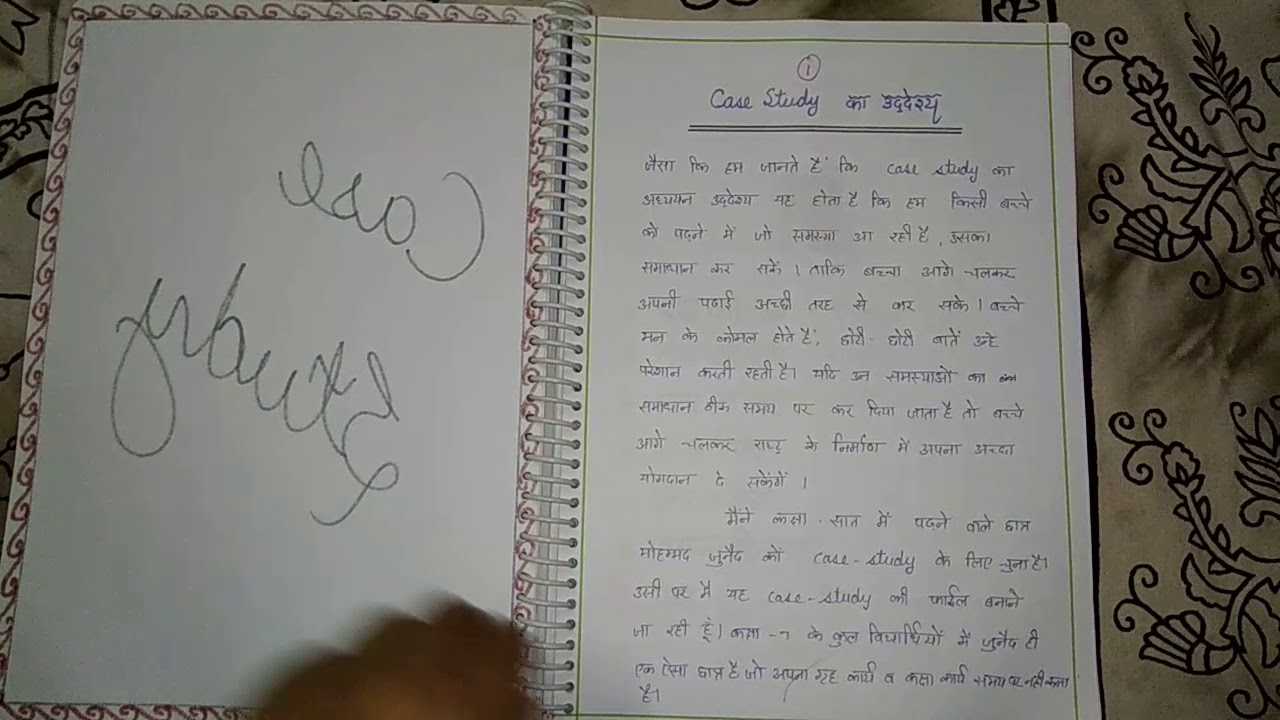 Case
Study
①
Case Study का उद्देश्य
जैसा कि हम जानते हैं कि case study का
अध्ययन उद्देश्य यह होता है कि हम किसी बच्चे
को पढ़ने में जो समस्या आ रही है, उसका
समाधान कर सकें । ताकि बच्चा आगे चलकर
अपनी पढाई अच्छी तरह से कर सके । बच्चे
मन के कोमल होते हैं, छोटी-छोटी बातें उन्हे
परेशान करती रहती है। यदि उन समस्याओं का
समाधान ठीक समय पर कर दिया जाता है तो बच्चे
आगे चलकर राष्ट्र के निर्माण में अपना अच्छा
योगदान दे सकेंगें ।
मैने कक्षा - सात में पढ़ने वाले छात्र
मोहम्मद जुनैद को case-study के लिए चुना है।
उसी पर मैं यह case-study की फाईल बनाने
जा रही हूँ। कक्षा -7 के कुल विद्यार्थियों में जुनैद ही
एक ऐसा छात्र है जो अपना गृह कार्य व कक्षा कार्य समय पर नहीं करता
है।